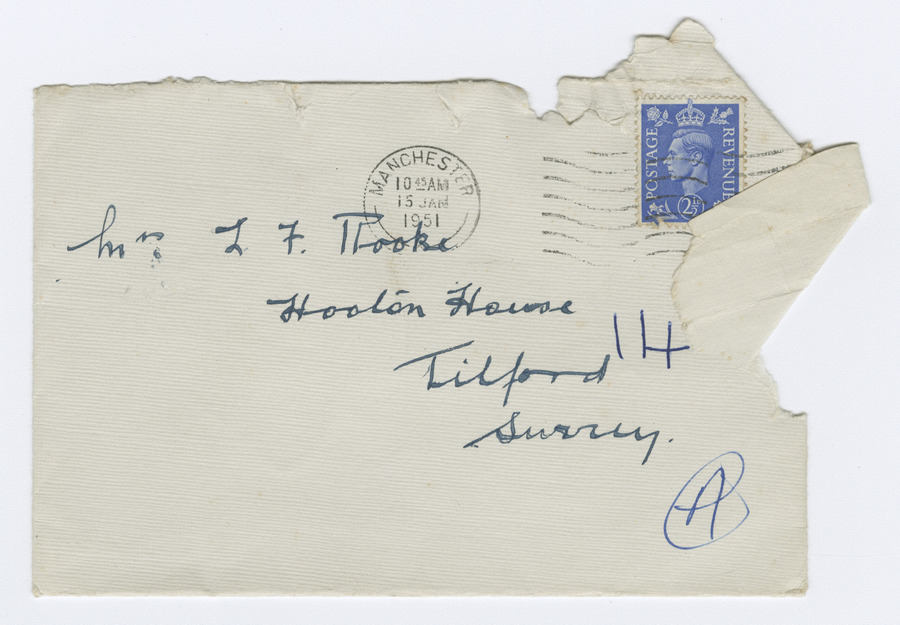 MANCHESTER
10 45 AM
15 JAN
1951
POSTAGE
REVENUE
2½
Mrs L F. Rooke
Hooton House
Tilford
Surrey.
14
A